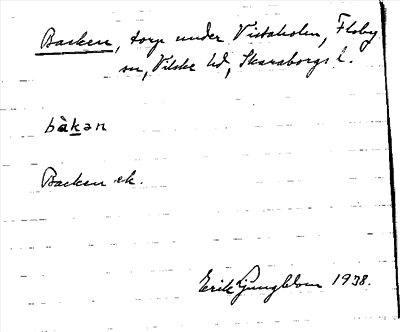 Backen, torp under Vistaholm, Floby
sn, Vilske hd, Skaraborgs l.
bàkən
Backen ek.
Erik Ljungblom 1938.